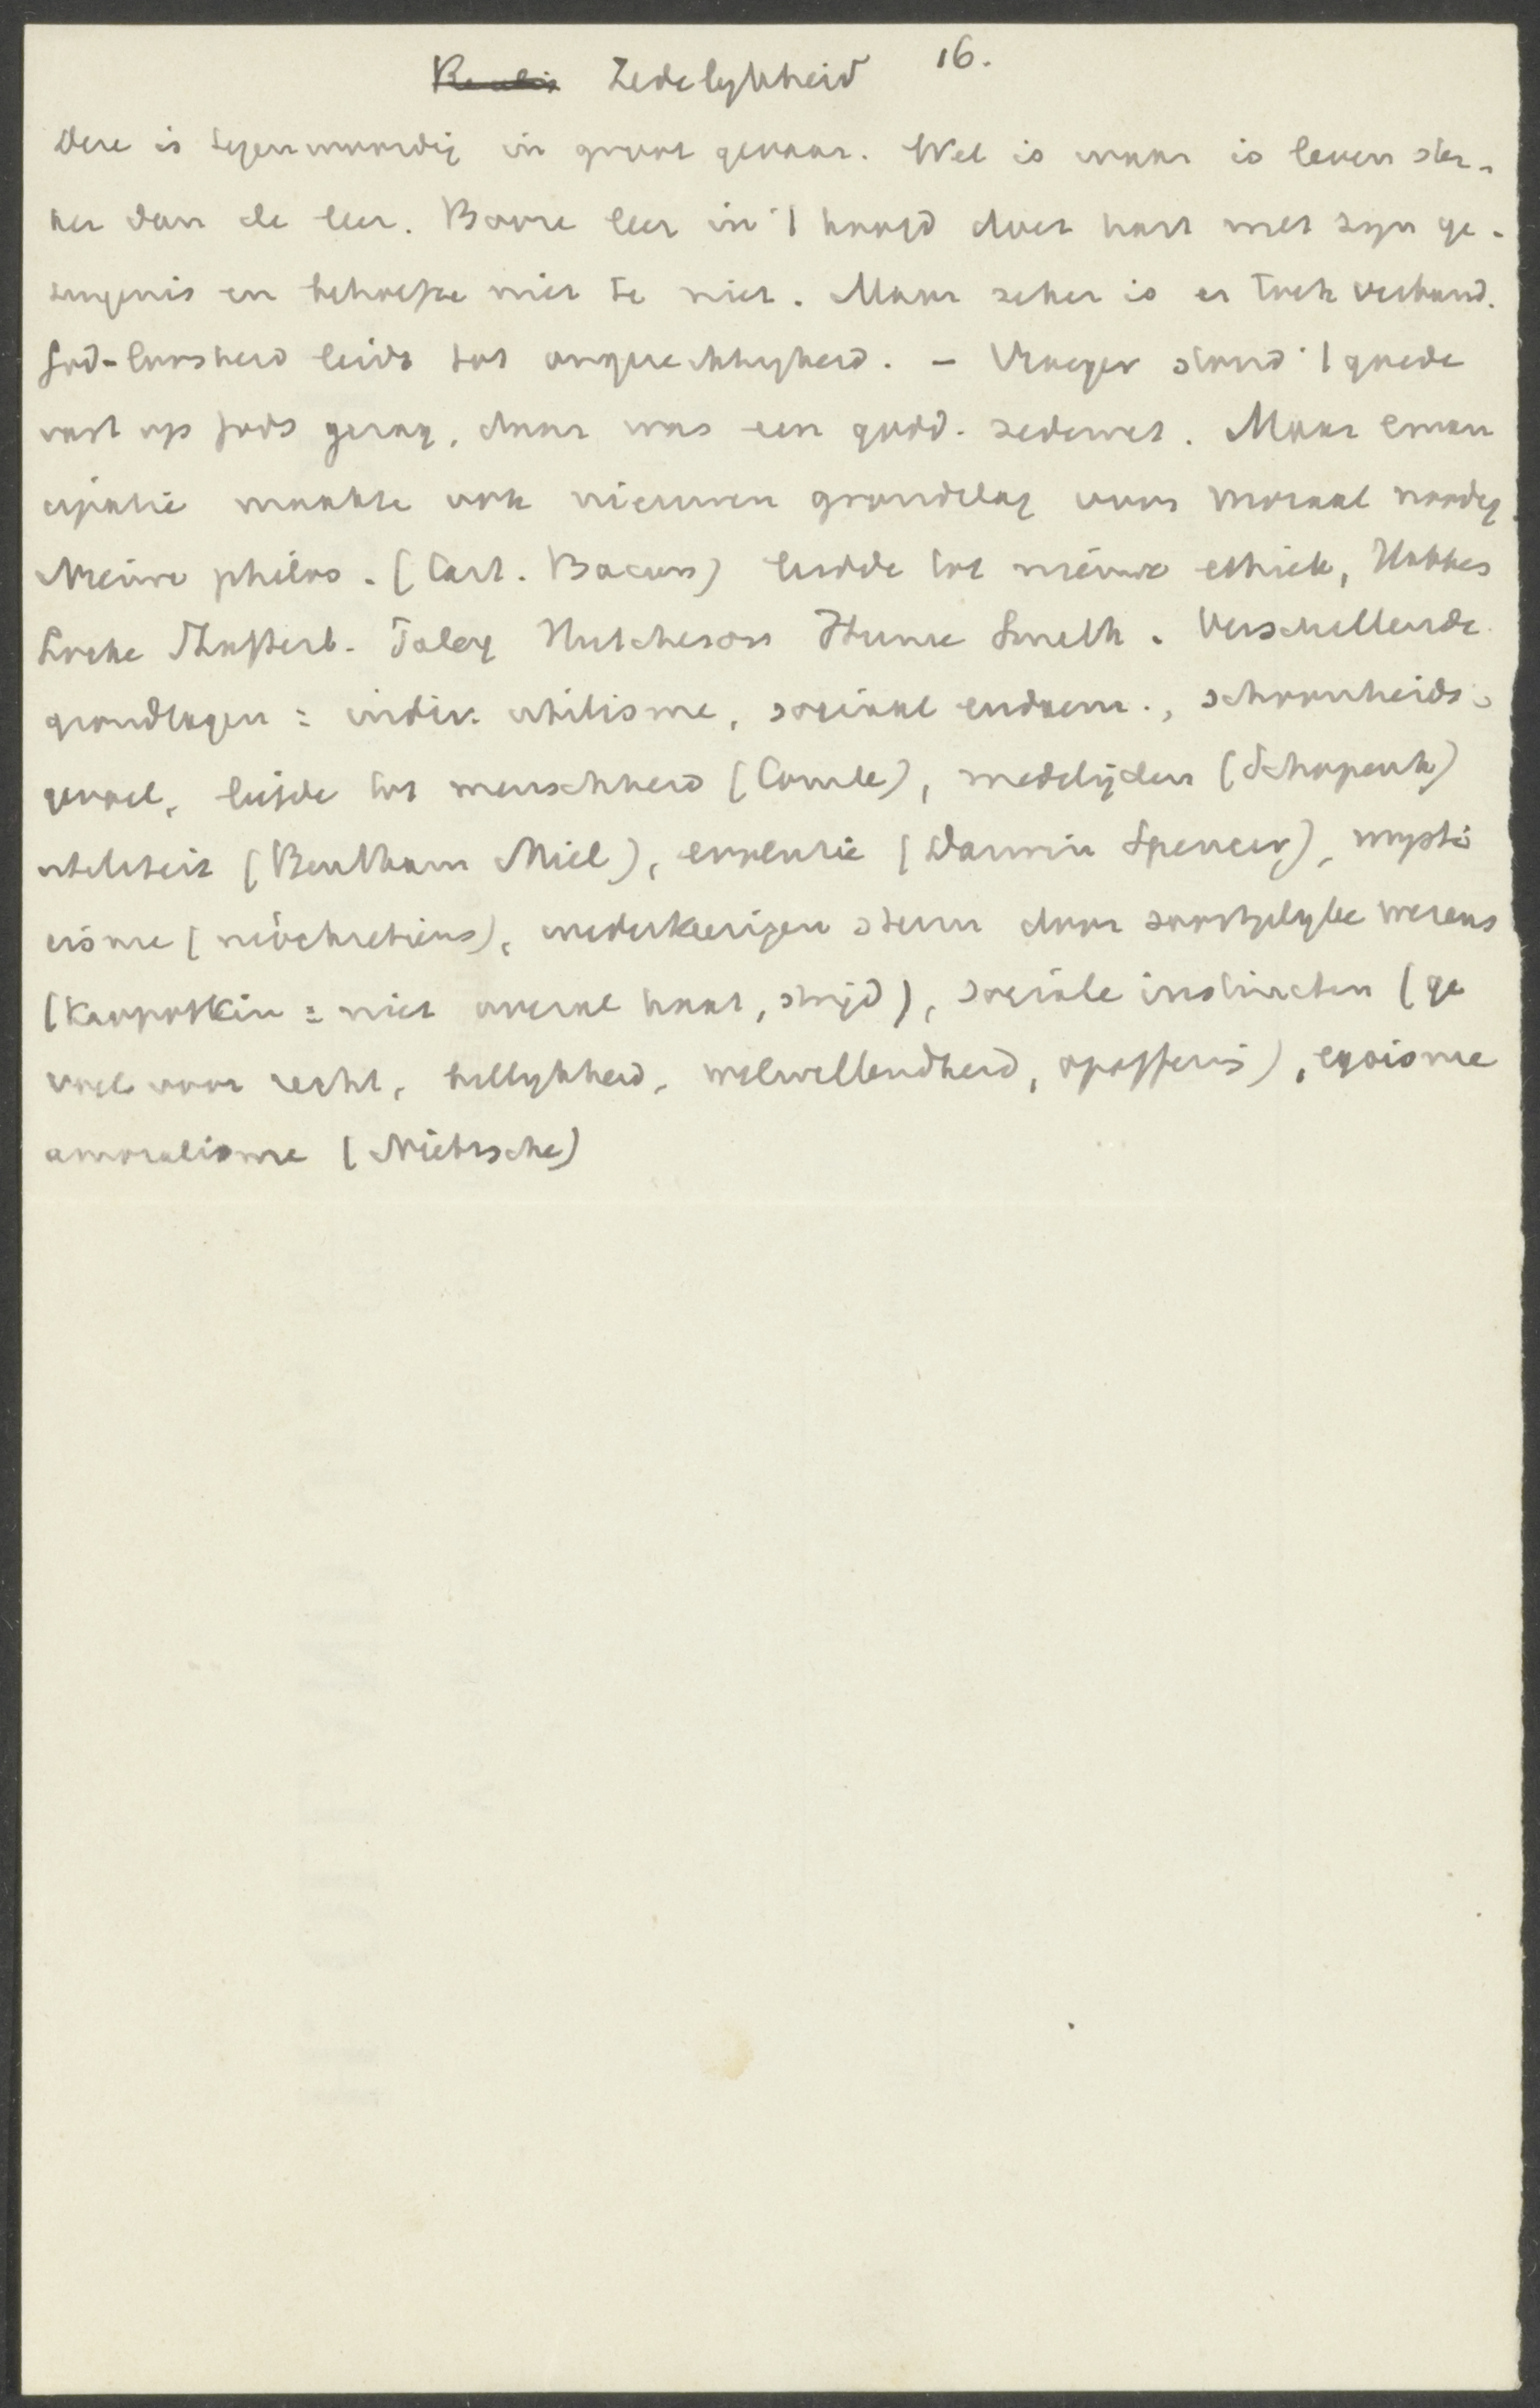 Zedelykheid 16.
Deze is tegenwoordig in groot gevaar. Wel is waar is leven ster-
ker dan de leer. Booze leer in 't hoofd doet hart met zyn ge-
tuigenis en behoefte niet te niet. Maar zeker is er toch verband.
God-loosheid leidt tot ongerechtigheid. - Vroeger stond 't goede
vast op Gods gezag, daar was een godd. zedewet. Maar eman
cipatie maakte ook nieuwen grondslag voor moraal noodig.
Nieuwe philos. (Cart. Bacon) leidde tot nieuwe ethiek, Hobbes
Locke Shaftesb. Paley Hutcheson Hume Smith. Verschillende
grondslagen: indiv. utilisme, sociaal eudaem., schoonheids-
gevoel, liefde tot menschheid (Comte), medelijden (Schopenh)
utiliteit (Bentham Mill), evolutie (Darwin Spencer), mysti
cisme (néochretiens), wederkeerigen steun door soortgelyke wezens
(Krapotkin: niet overal haat, strijd), sociale instincten (ge
voel voor recht, billykheid, welwillendheid, opoffering), egoisme
amoralisme (Nietzsche)